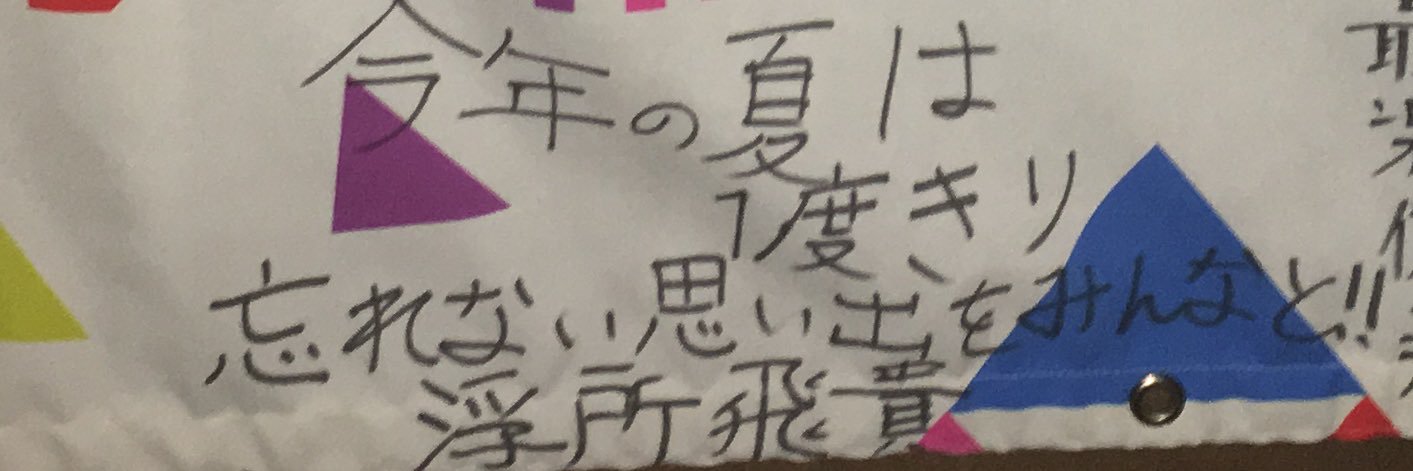 今年の夏は
1度きり
忘れない思い出をみんなと!!
浮所飛貴